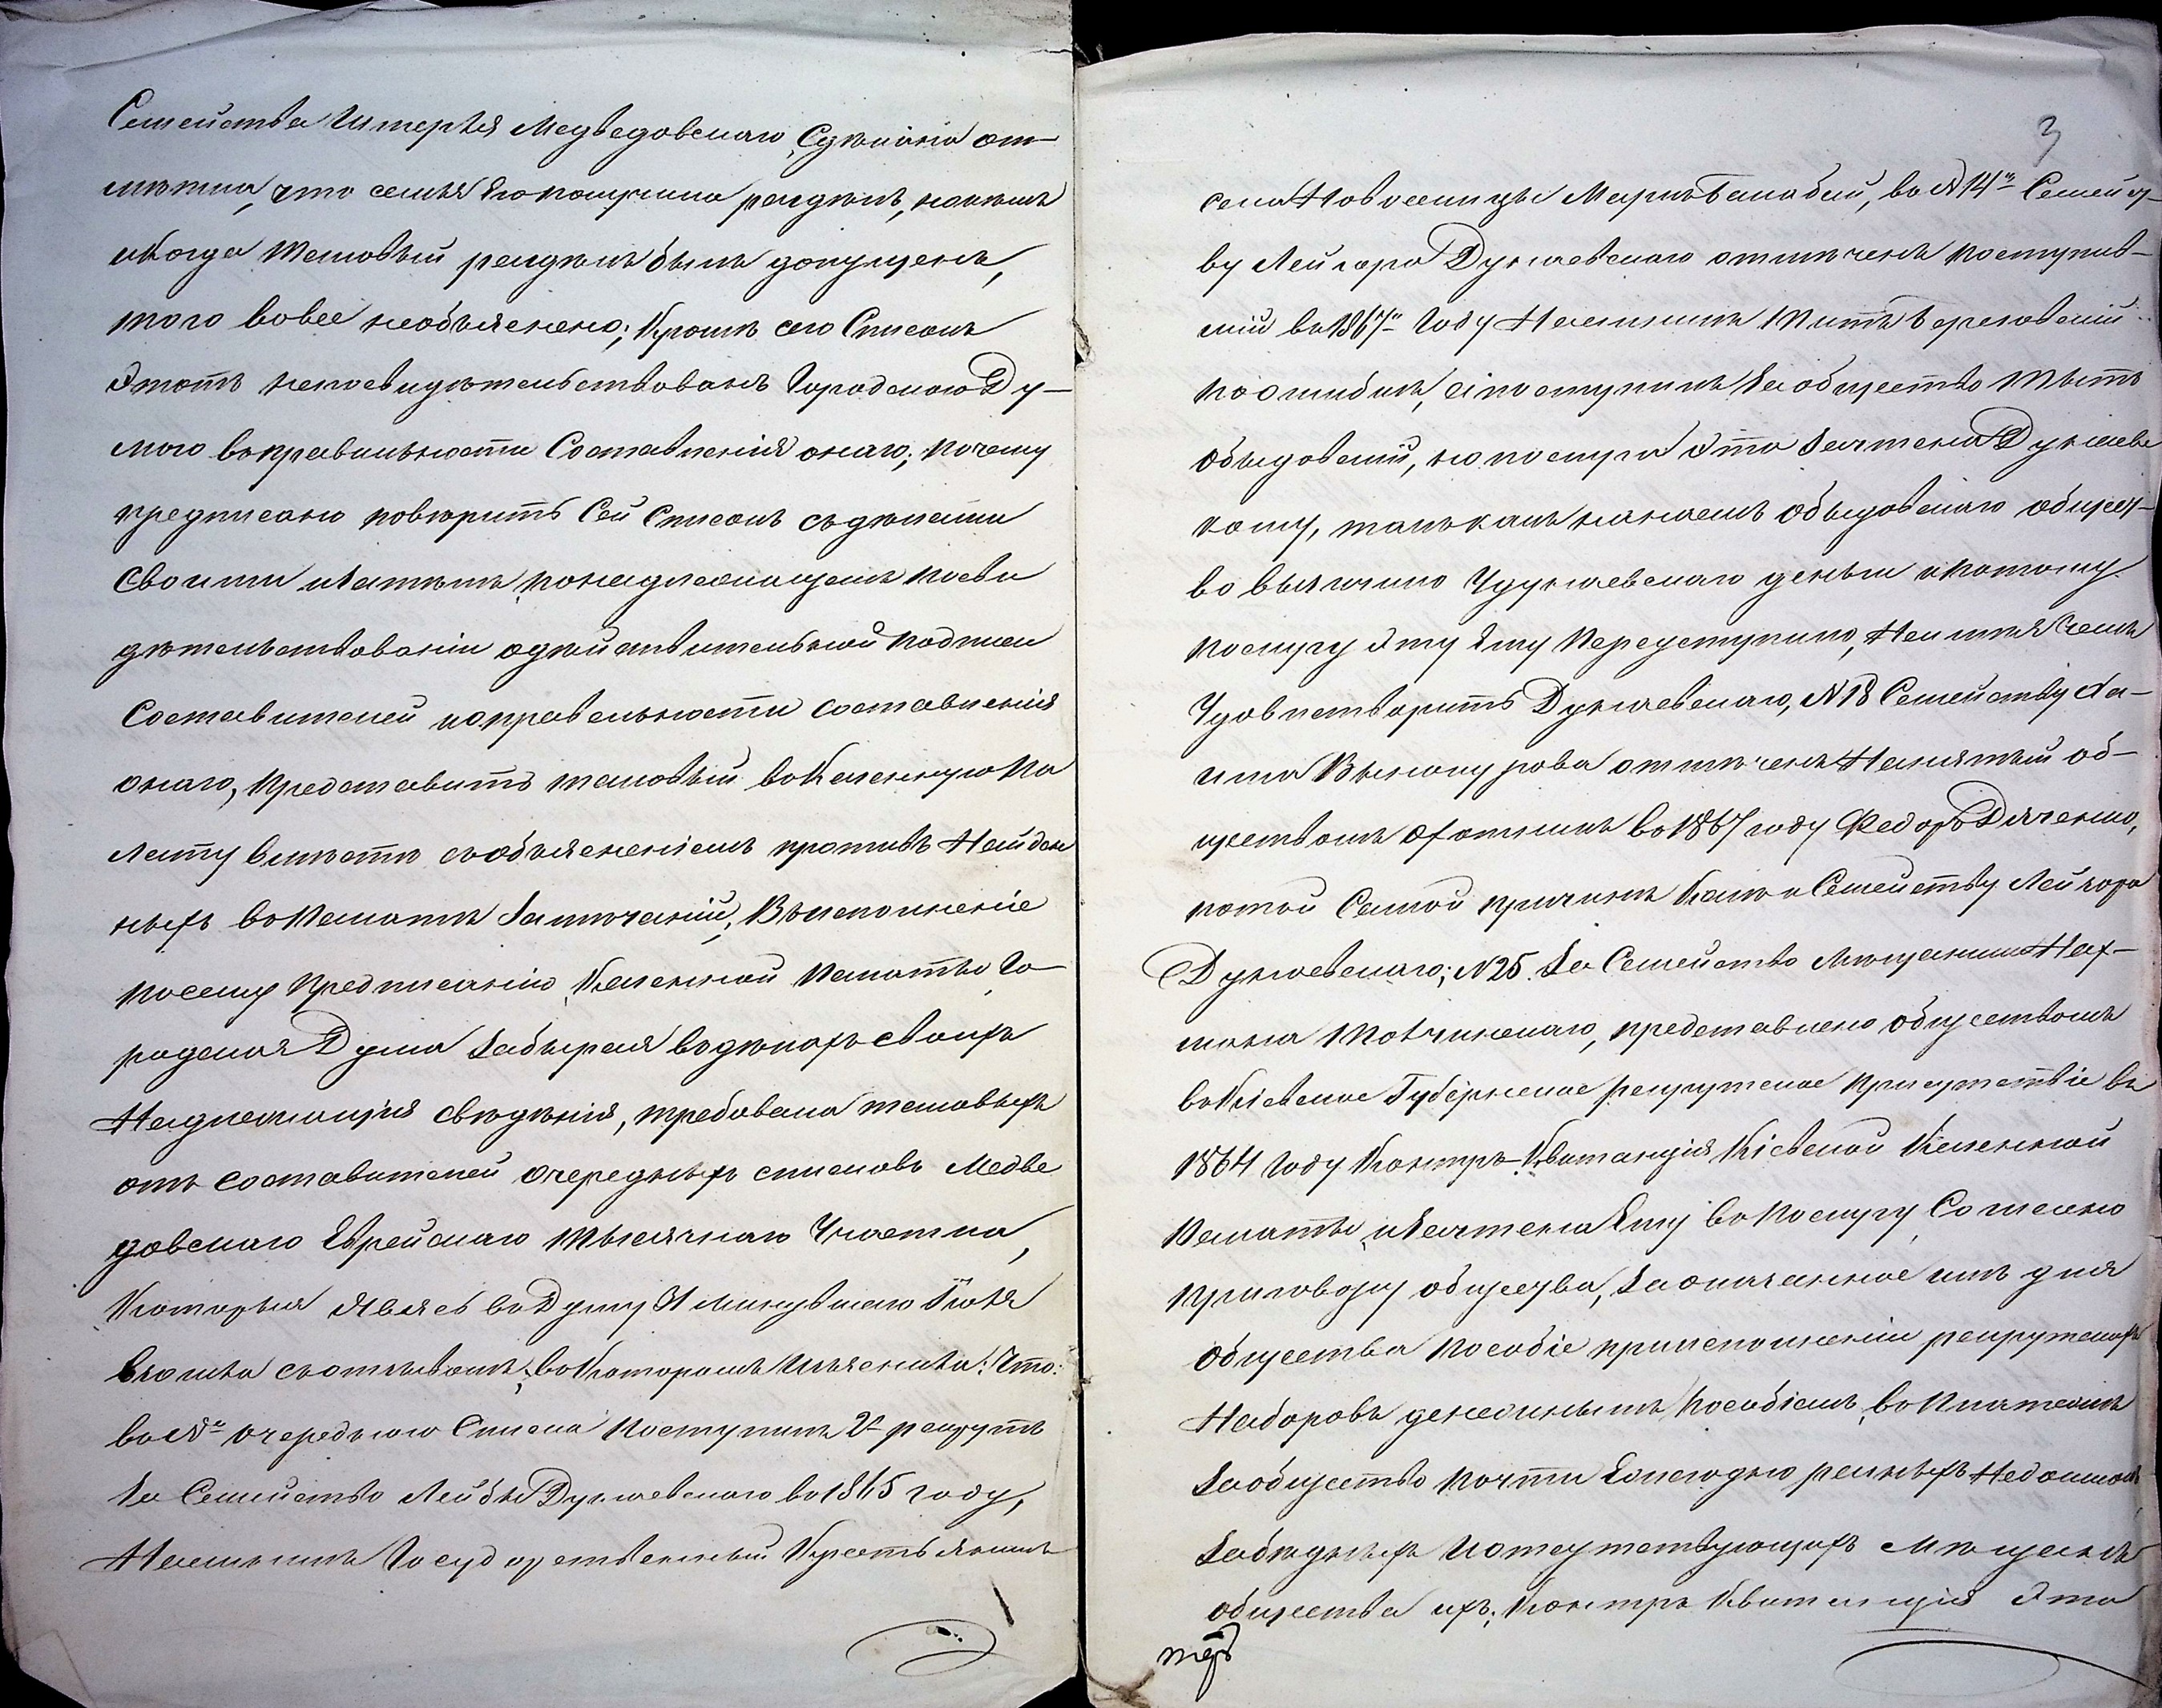 Семейства Шмерля Медведовскаго, Сдѣлана от-
мѣтка, что семья Его получила раздѣлъ, но кѣмъ
и когда таковый раздѣлъ былъ допущенъ,
того вовсе необъяснено; Кромѣ сего Списокъ
Этотъ незасвидѣтельствованъ Городскою Ду-
мою въ правильности Составленія онаго; почему
предписано повѣрить Сей Списокъ съ дѣлами
Своими и затѣмъ, по надлежащемъ Засви
дѣтельствованіи о дѣйствительной подписи
Составителей и о правельности составленія
онаго, представить таковый въ Казенную Па
лату вмѣстѣ съ объясненіемъ противъ Найден
ныхъ въ Палатѣ Замѣчаній; Въ исполненіе
по сему предписанію Казенной Палаты, Го-
родская Дума Забирая въ дѣлахъ своихъ
Надлежащія свѣдѣнія, требовала таковыхъ
отъ составителей очередныхъ списковъ Медве
довскаго Еврейскаго Мысячнаго Участка,
Которыя Явясь въ Думу 31 минувшаго Іюля
вошли съ отзывомъ, въ Которомъ Изъяснили: Что:
въ № очереднаго Списка поступилъ 2й рекрутъ
За Семейство Лейбы Дунаевскаго въ 1865 году,
Наемникъ Государственный Крестьянинъ
3
села Новоселицы Маркъ Балабай, въ № 14м Семейст-
ву Лейзора Дунаевскаго отмѣченъ поступив-
шій въ 1867м Году Наемникъ Титъ Березовскій
по ошибкѣ, а поступилъ За общество Титъ
Объедовскій, но послуга Эта Зачтена Дунаевс
кому, такъ какъ на наемъ Объедовскаго общест-
во взяло у Дунаевскаго деньги и потому
послугу Эту Ему Переуступило, Неимѣя Чемъ
Удовлетворить Дунаевскаго, N 18 Семейству Ха-
има Винокурова отмѣченъ Нанятый об-
ществомъ Охотникъ въ 1867 году Федоръ Дяченко,
по той Самой причинѣ Какъ и Семейству Лейзора
Дунаевскаго; N 25. За Семейство Мѣщанина Нах-
мана Товчинскаго, представлено обществомъ
въ Кіевское Губернское рекрутское присутствіе въ
1864 Году Контръ-Квитанція Кіевской Казенной
Палаты, и Зачтена Ему въ Послугу, Согласно
приговору общества, За оказанное имъ для
общества пособіе при исполненіи рекрутскихъ
Наборовъ денежнымъ пособіемъ, въ платежѣ
За общество почти Ежегодно разныхъ недоимокъ
За бѣдныхъ и отсутствующихъ Мѣщанъ
общества ихъ; Контръ Квитанція Эта